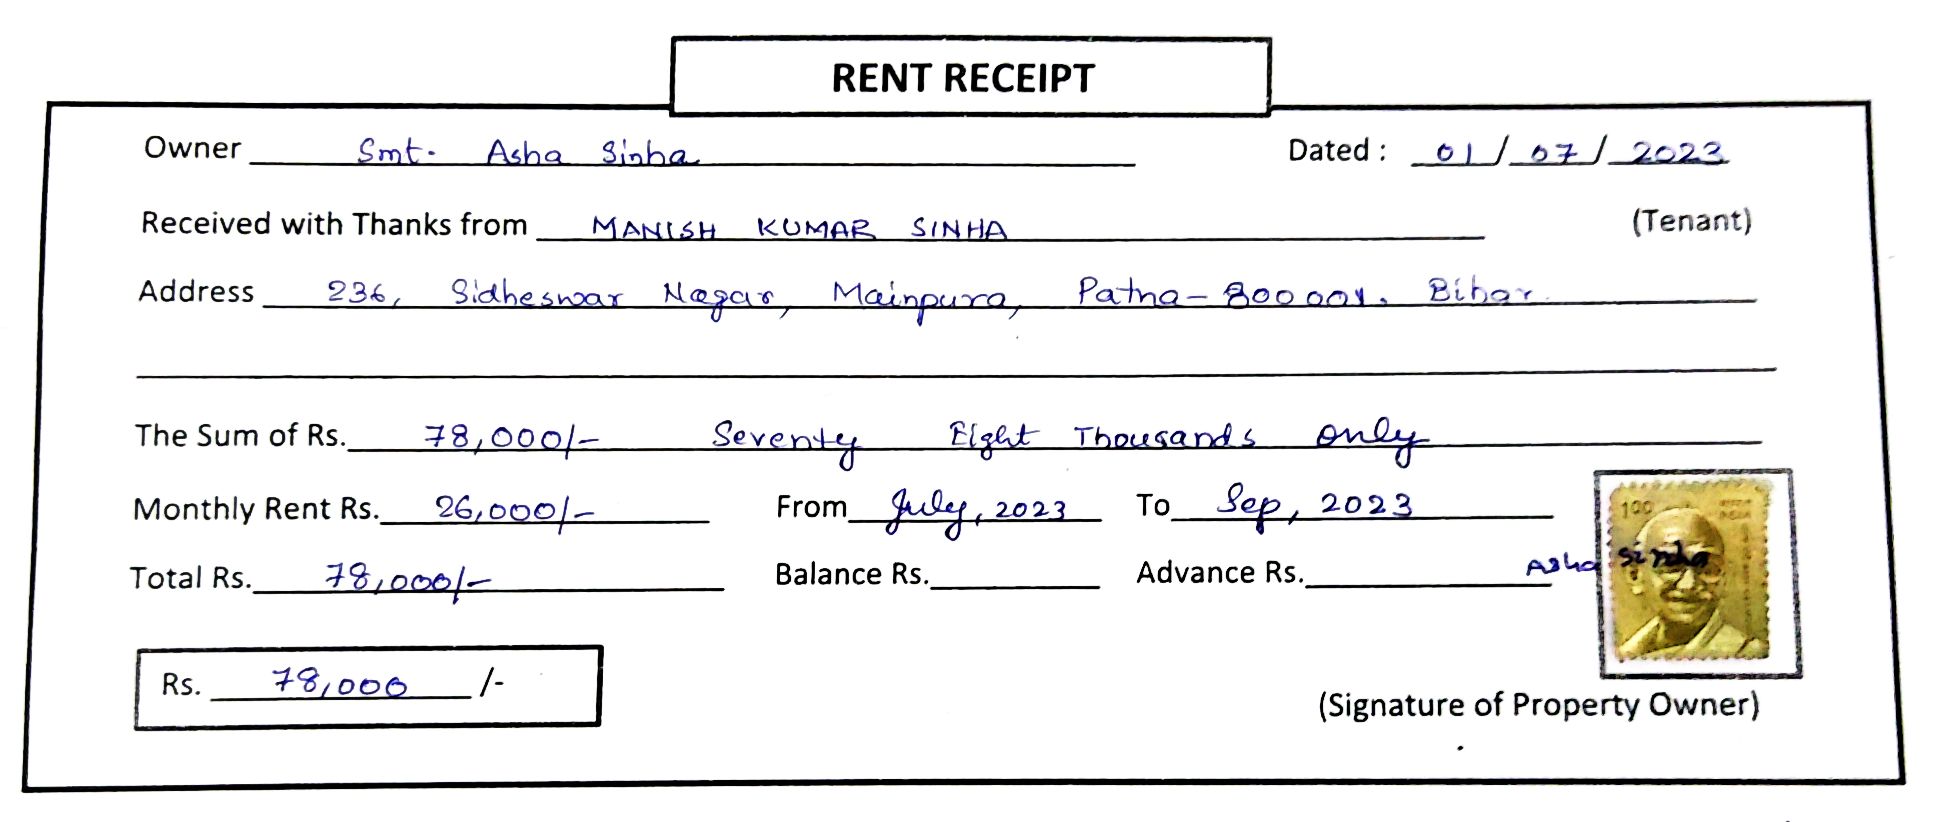 RENT RECEIPT
Owner Smt. Asha Sinha Dated : 01/07/2023
Received with Thanks from MANISH KUMAR SINHA (Tenant)
Address 236, Sidheswar Nagar, Mainpura, Patna- 800001. Bihar
The Sum of Rs. 78,000/- Seventy Eight Thousands only
Monthly Rent Rs. 26,000/- From July, 2023 To Sep, 2023
100
Total Rs. 78,000/- Balance Rs. Advance Rs. Asha Sinha
Rs. 78,000 /-
(Signature of Property Owner)